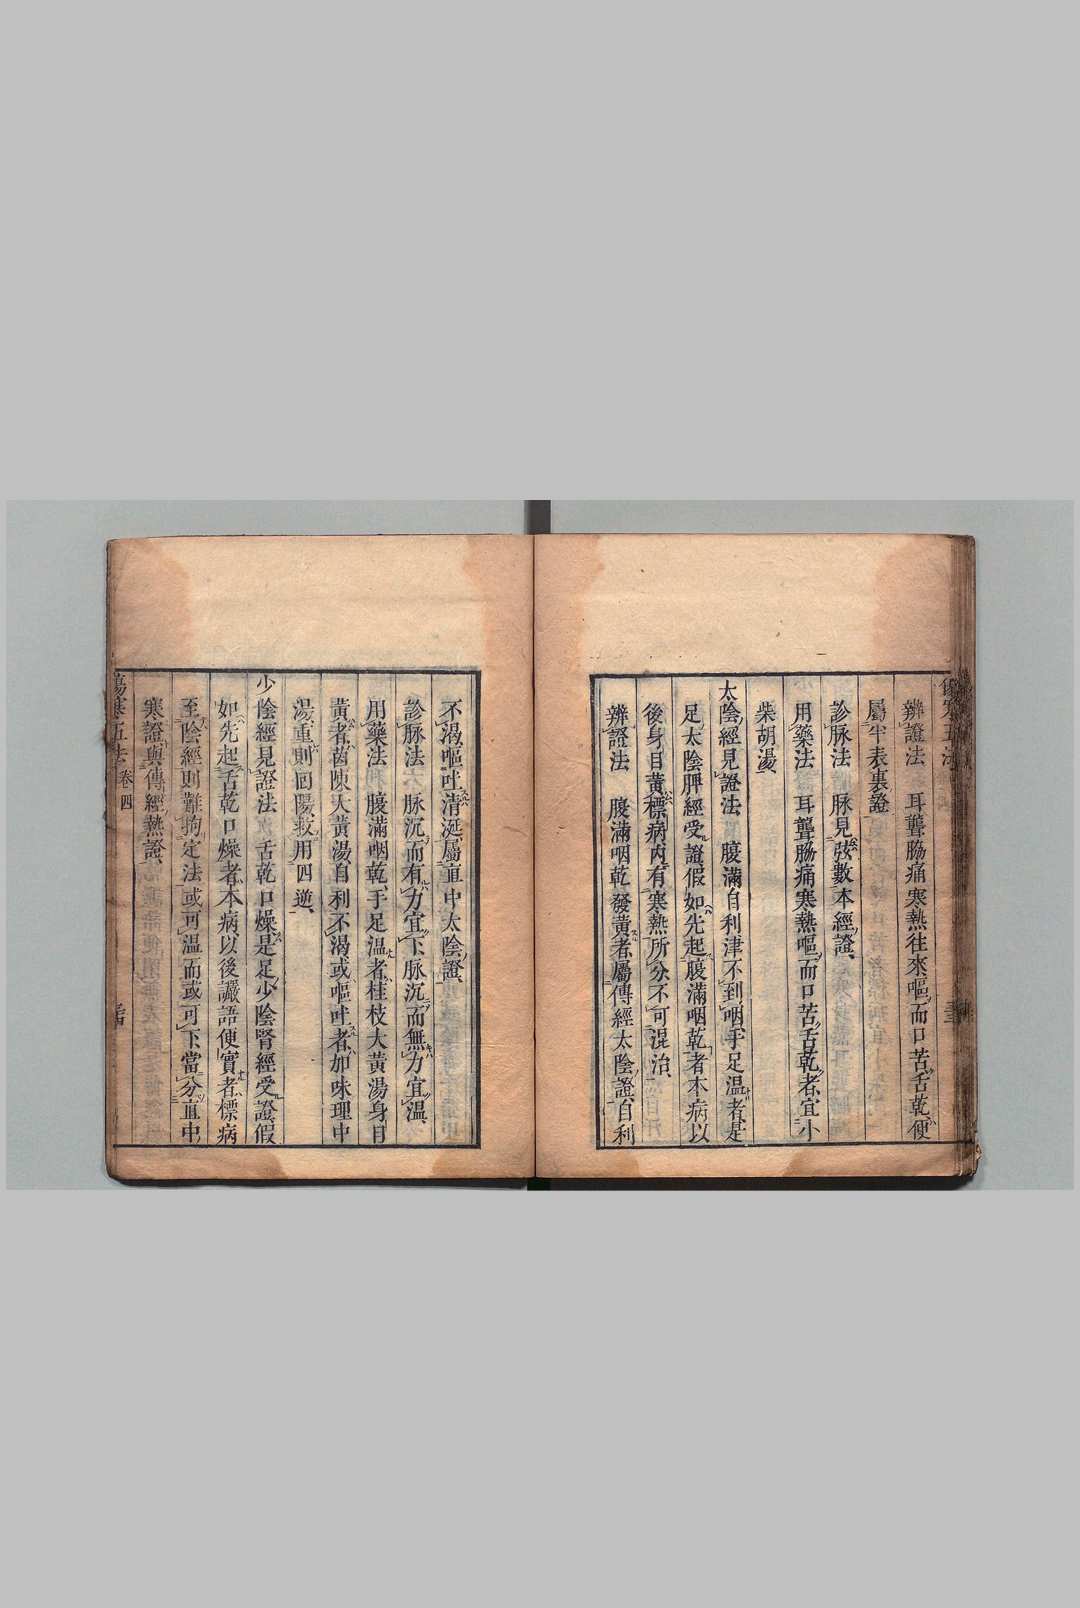 辨證法　耳聾脇痛寒熱往來嘔而口苦舌乾便
屬半表裏證
診脉法　脉見弦數本經證
用藥法　耳聾脇痛寒熱嘔而口苦舌乾者宜小
柴胡湯
太陰經見證法　腹滿自利津不到咽手足溫者是
足太陰脾經受證假如先起腹滿咽乾者本病以
後身目黃標病內有寒熱所分不可混治
辨證法　腹滿咽乾發黃者屬傳經太陰證自利
不渴嘔吐清涎屬直中太陰證
診脉法　脉沉而有力宜下脉沉而無力宜溫
用藥法　腹滿咽乾手足溫者桂枝大黃湯身目
黃者茵陳大黃湯自利不渴或嘔吐者加味理中
湯重則回陽救用四逆
少陰經見證法　舌乾口燥是足少陰腎經受證假
如先起舌乾口燥者本病以後讝語便實者標病
至陰經則難拘定法或可溫而或可下當分直中
寒證與傳經熱證
傷寒五法　卷四